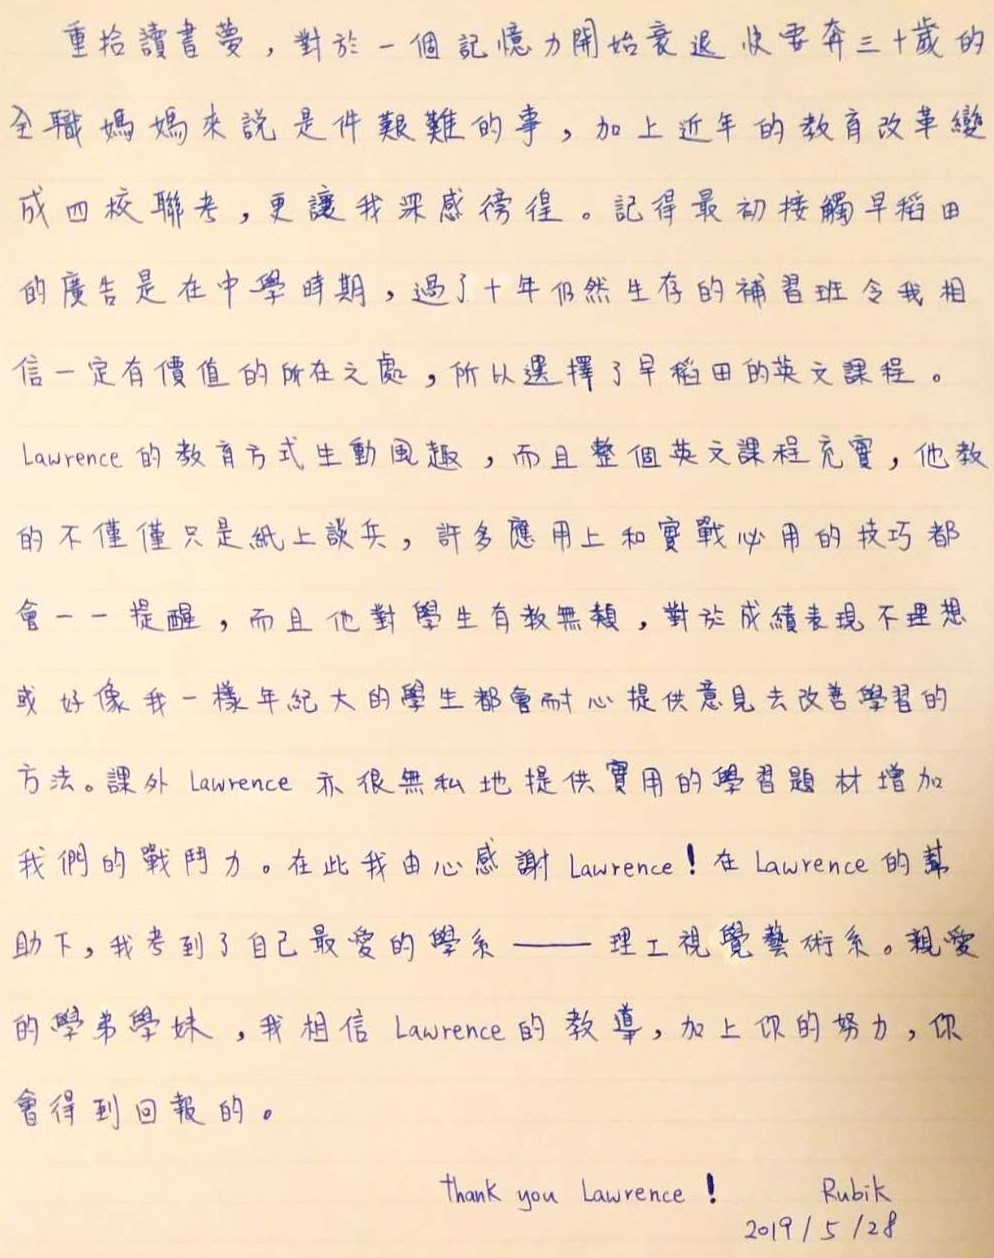 重拾讀書夢，對於一個記憶力開始衰退快要奔三十歲的
全職媽媽來説是件艱難的事，加上近年的教育改革變
成四校聯考，更讓我深感徬徨。記得最初接觸早稻田
的廣告是在中學時期，過了十年仍然生存的補習班令我相
信一定有價值的所在之處，所以選擇了早稻田的英文課程。
Lawrence的教育方式生動風趣，而且整個英文課程充實，他教
的不僅僅只是紙上談兵，許多應用上和實戰必用的技巧都
會一一提醒，而且他對學生有教無類，對於成績表現不理想
或好像我一樣年紀大的學生都會耐心提供意見去改善學習的
方法。課外Lawrence亦很無私地提供實用的學習題材增加
我們的戰鬥力。在此我由心感謝Lawrence！在Lawrence的幫
助下，我考到了自己最愛的學系——理工視覺藝術系。親愛
的學弟學妹，我相信Lawrence的教導，加上你的努力，你
會得到回報的。
thank you Lawrence！ Rubik
2019/5/28